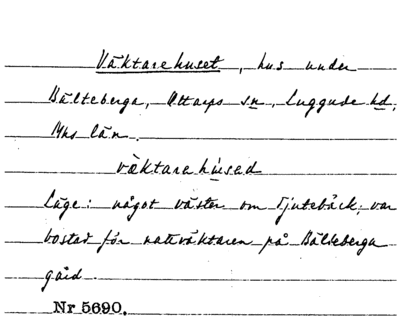 Väktarehuset, hus under
Bälteberga, Ottarps sn, Luggude hd,
Mhs län.
väktarehused
Läge: något väster om Tjutebäck; var
bostad för nattväktaren på Bälteberga
gård.
Nr 5690.